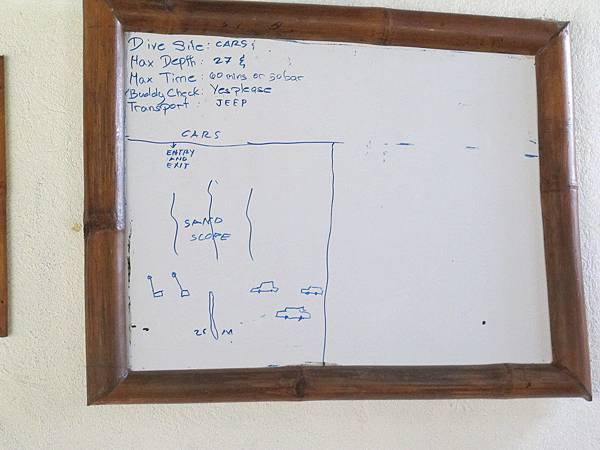 Dive Site: CARS
Max Depth: 27
Max Time: 60 mins or 50bar
Buddy Check: Yes please
Transport: JEEP
CARS
ENTRY
AND
EXIT
SAND
SCOPE
M